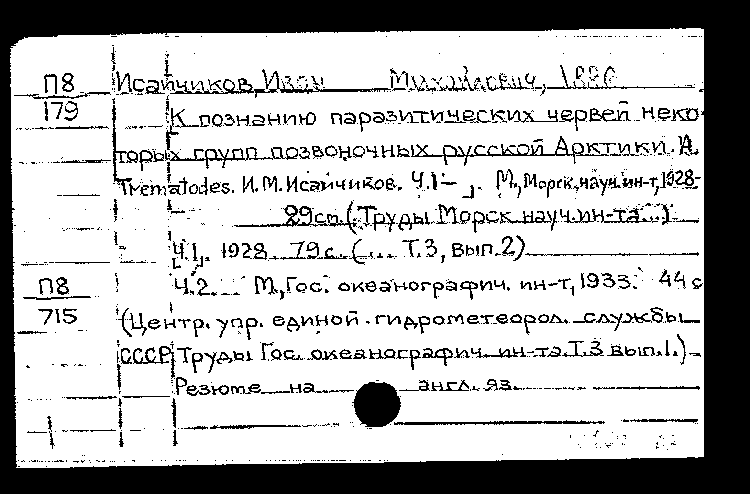 П8 Исайчиков, Иван Михайлович, 1886
179 К познанию паразитических червей неко-
торых групп позвоночных русской Арктики. А.
Trematodes. И.М. Исайчиков. Ч.1– . М., Морск. науч. ин-т, 1928-
29 cm. (Труды Морск. науч. ин-та...)
Ч.1. 1928. 79 с. (... Т.3, вып.2)
П8 Ч.2. М., Гос. океанографич. ин-т, 1933. 44 с
715 (Центр. упр. единой гидрометеорол. службы
СССР Труды Гос. океанографич. ин-та. Т.3 вып.1.)
Резюме на англ. яз.